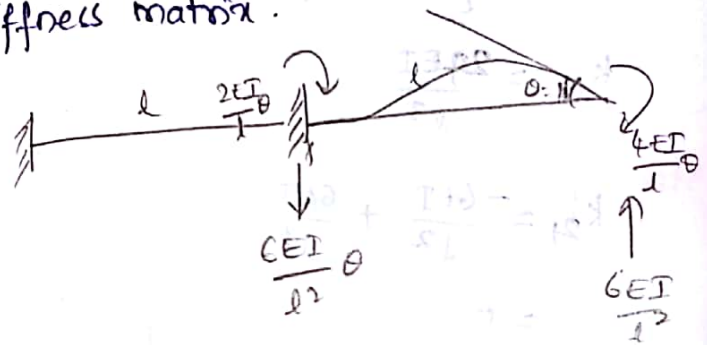 ffness matrix.
l
2EI/l θ
l
θ=1
4EI/l θ
6EI/l² θ
6EI/l²